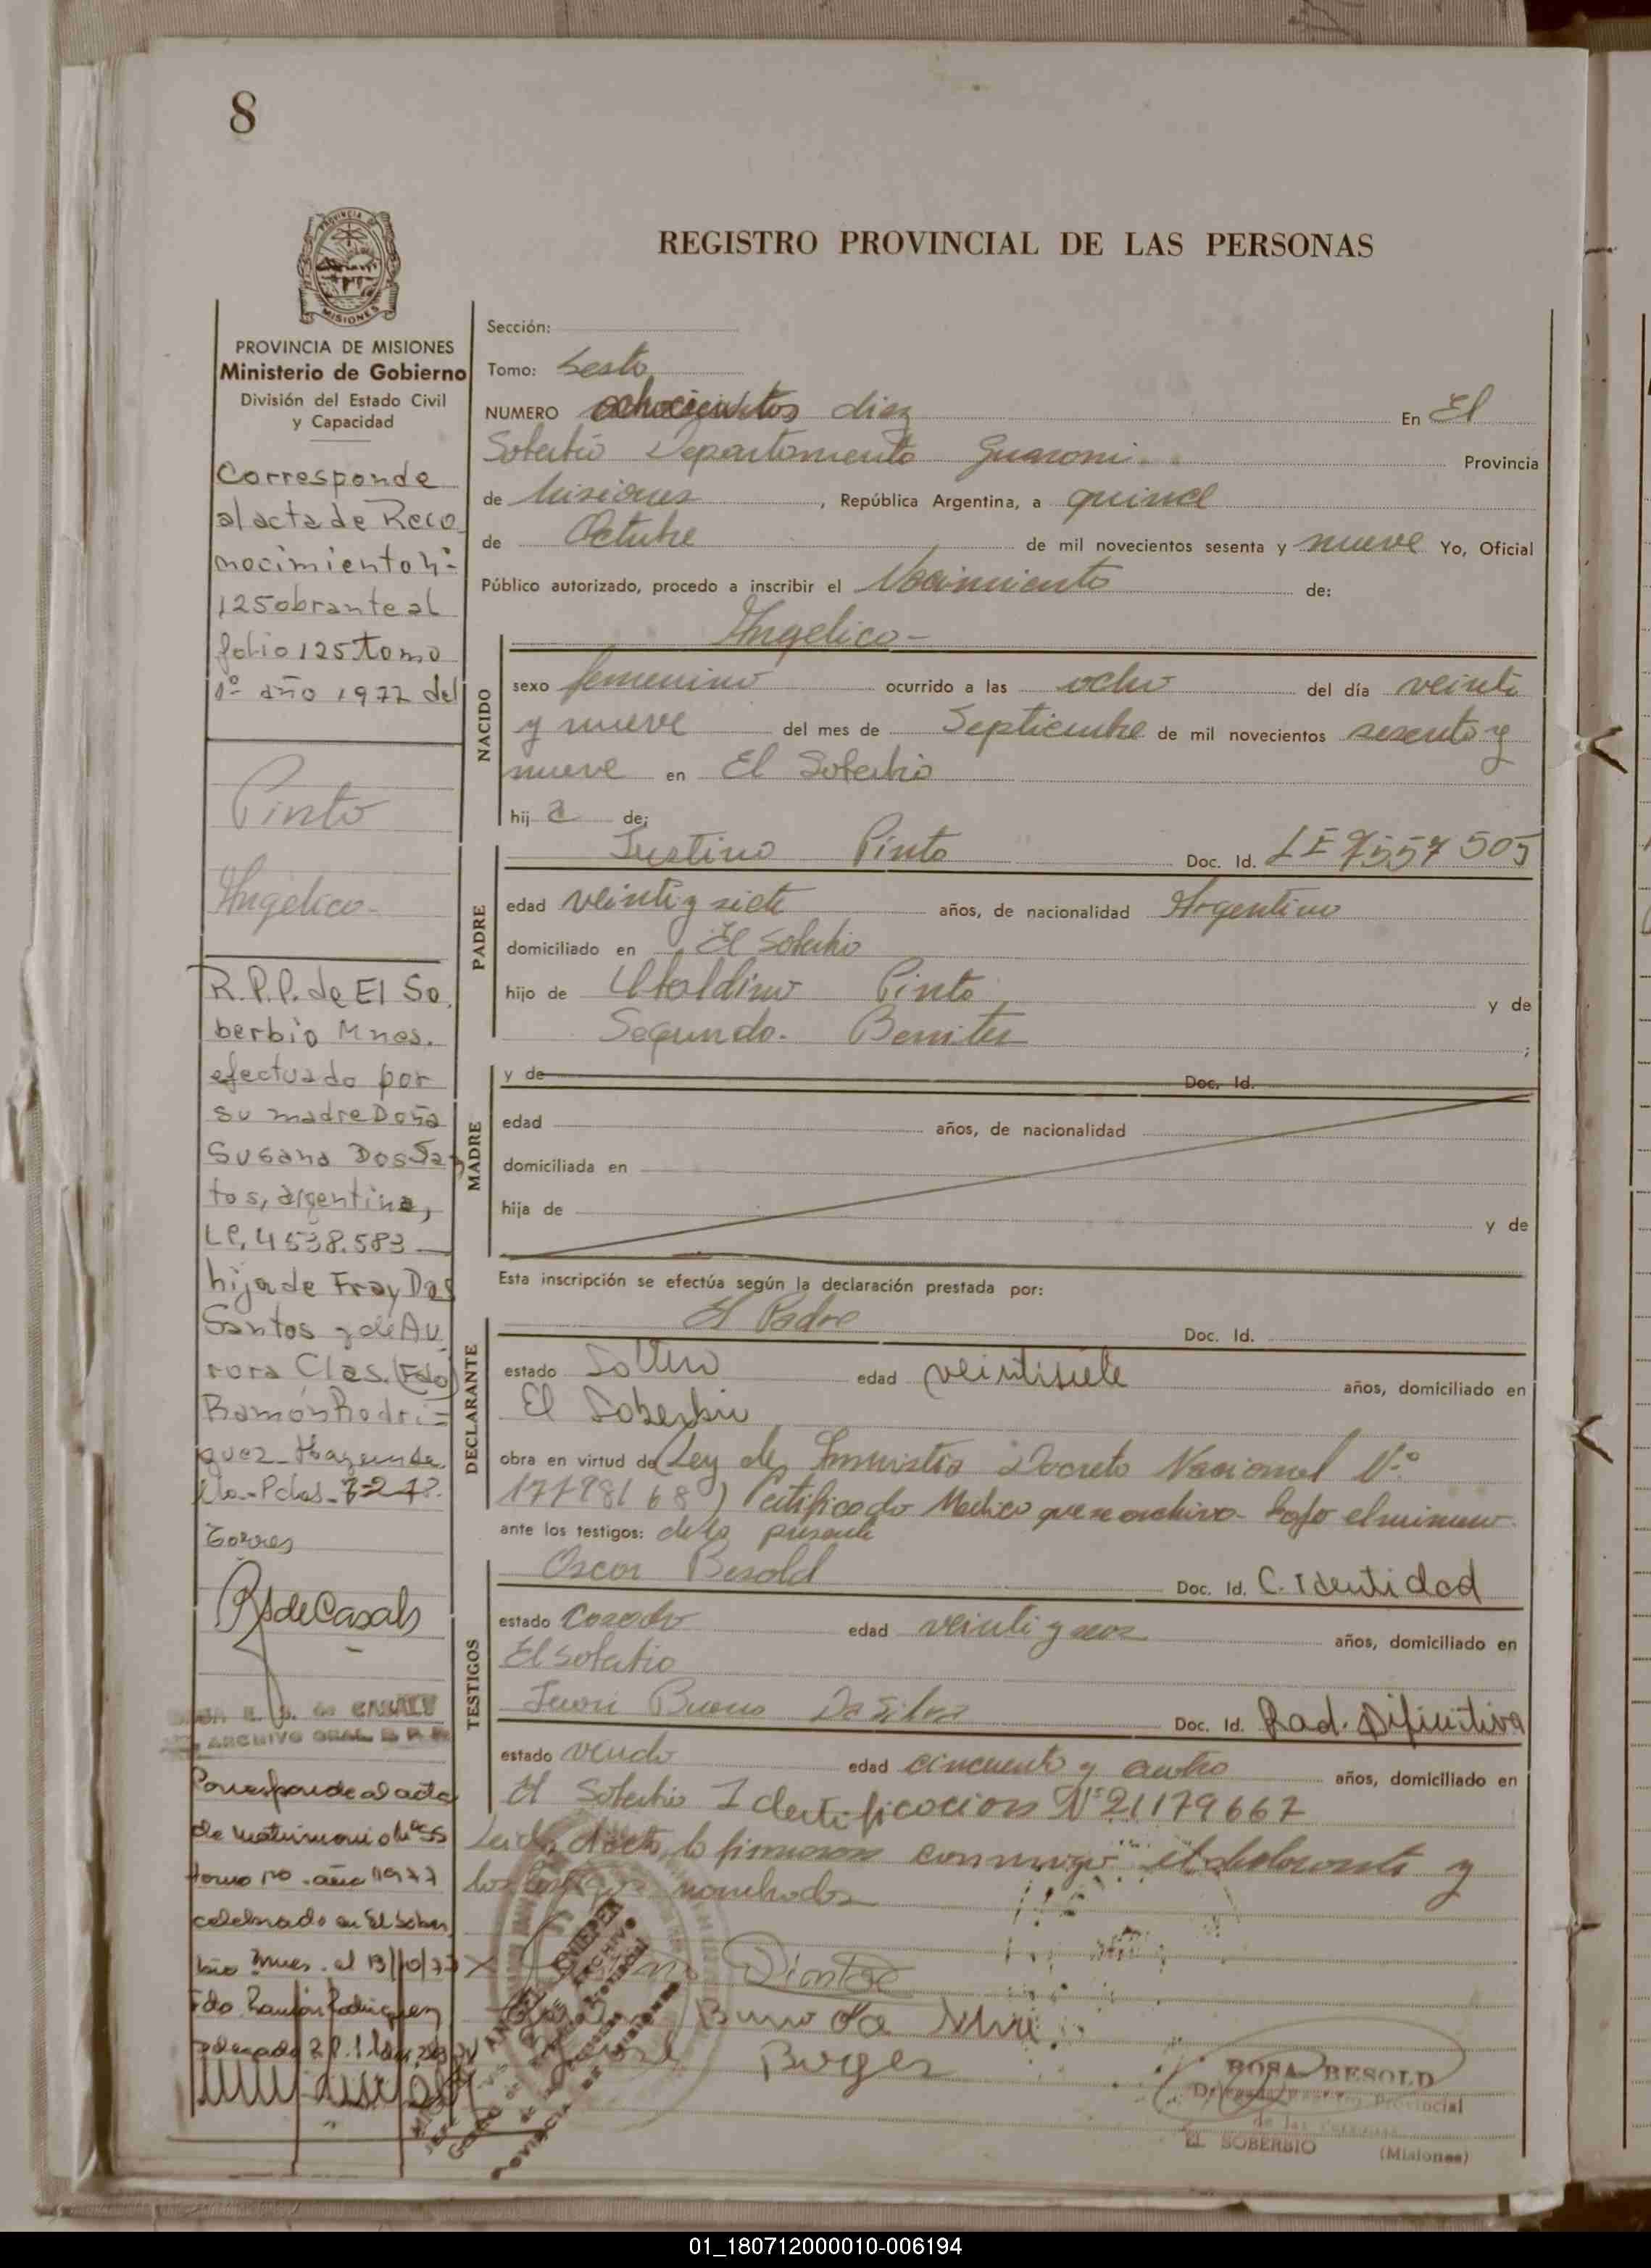 8
PROVINCIA DE
MISIONES
REGISTRO PROVINCIAL DE LAS PERSONAS
PROVINCIA DE MISIONES
Ministerio de Gobierno
División del Estado Civil
y Capacidad
Corresponde
al acta de Reco
nocimiento Nº
125 obrante al
folio 125 tomo
1º año 1972 del
Pinto
Angelica-
R.P.P. de El So
berbio Mnes.
efectuado por
su madre Doña
Susana Dos San
tos, argentina,
LC. 4538.583
hija de Fray Dos
Santos y de Au
rora Clas. (Fdo)
Ramón Rodri=
guez-
Pdas-
Torres
RSdeCasals
de CASALS
ARCHIVO GRAL R P P
Corresponde al acta
de matrimonio Nº 55
tomo 1º. año 1977
celebrado en El Sober
bio Mnes. el 13/10/77
Fdo. Ramón Rodriguez
Sección:
Tomo: Sesto
NUMERO ochocientos diez En El
Soberbio Departamento Guarani Provincia
de Misiones, República Argentina, a quince
de Octubre de mil novecientos sesenta y nueve Yo, Oficial
Público autorizado, procedo a inscribir el Nacimiento de:
Angelica-
NACIDO
sexo femenino ocurrido a las ocho del día veinti
y nueve del mes de Septiembre de mil novecientos sesenta y
nueve en El Soberbio
hij a de:
PADRE
Justino Pinto Doc. Id. LE 7557 505
edad veinti y siete años, de nacionalidad Argentino
domiciliado en El Soberbio
hijo de Ubaldino Pinto y de
Segunda. Benitez ;
MADRE
y de Doc. Id.
edad años, de nacionalidad
domiciliada en
hija de y de
Esta inscripción se efectúa según la declaración prestada por:
DECLARANTE
El Padre Doc. Id.
estado Soltero edad veintisiete años, domiciliado en
El Soberbio
obra en virtud de (Ley de Amnistia Decreto Nacional Nº
17798168) Certificado Medico que se archiva bajo el numero
ante los testigos: de la presente
TESTIGOS
Oscar Besold Doc. Id. C. Identidad
estado Casado edad veinti y seis años, domiciliado en
El Soberbio
Bueno Da Silva Doc. Id. Rad. Difinitiva
estado viudo edad cincuenta y cuatro años, domiciliado en
El Soberbio Identificacion Nº 21179667
Leida el acta, la firmaron conmigo el declarante y
los testigos nombrados
X
Bueno
ARCHIVO
PROVINCIA DE MISIONES
ROSA BESOLD
Provincial
de las Personas
EL SOBERBIO (Misiones)
01_180712000010-006194